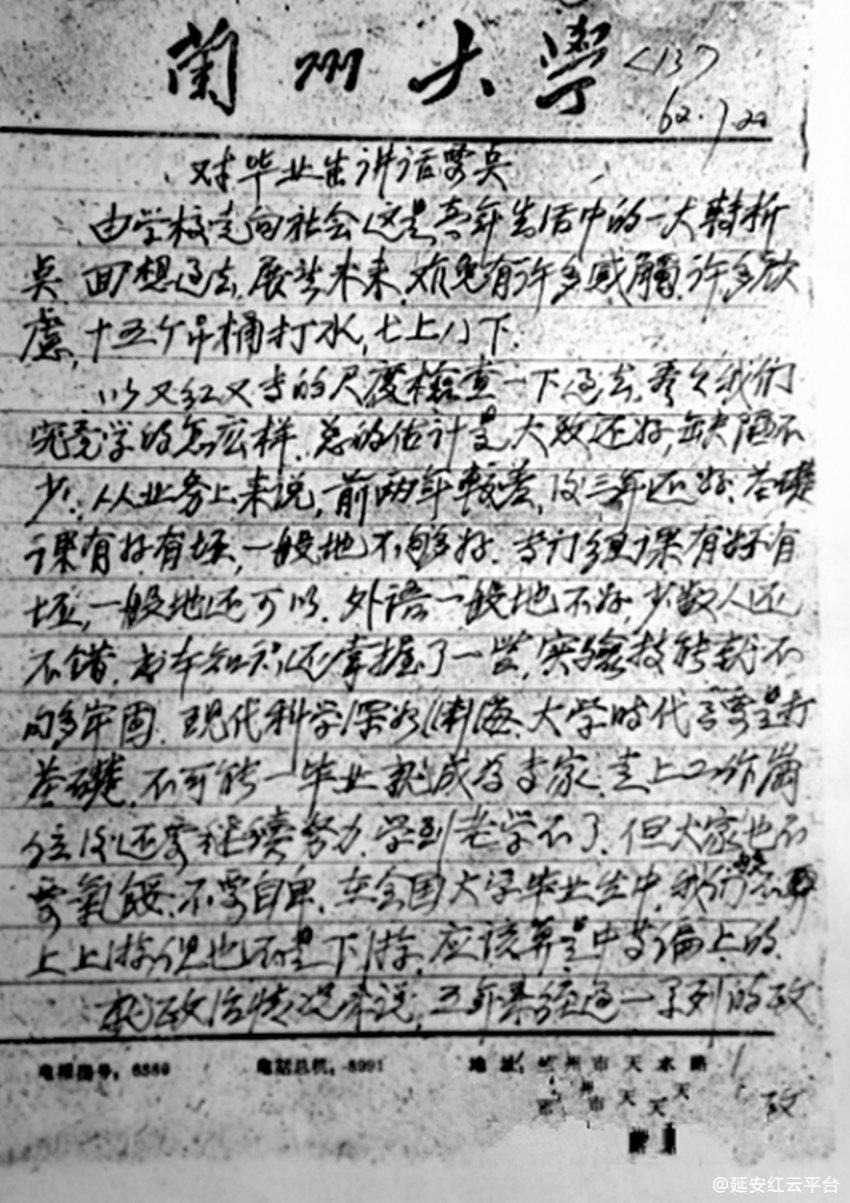 兰州大学 <13>
62.7.22
对毕业生讲话要点
由学校走向社会这是青年生活中的一大转折
点.回想过去,展望未来,难免有许多感觸,许多欤
慮,十五个吊桶打水,七上八下.
以又红又专的尺度检查一下过去.看々我们
究竟学的怎么样.总的估计是大致还好,缺陷不
少.从业务上来说,前两年较差,后三年还好.基礎
课有好有坏,一般地不够好.专门组课有好有
坏,一般地还可以.外语一般地不好,少数人还
不错.书本知识还掌握了一些,实验技能就不
够牢固.现代科学深如渊海.大学时代主要是打
基礎,不可能一毕业就成为专家.走上工作崗
位后还要继续努力.学到老学不了.但大家也不
要氣餒.不要自卑.在全国大学毕业生中,我们虽不算
上上游,但也不是下游.应该算是中等偏上的.
就政治情况来说,五年来经过一系列的政
电报挂号:6380 电话总机:8991 地址:兰州市天水路
政
@延安红云平台